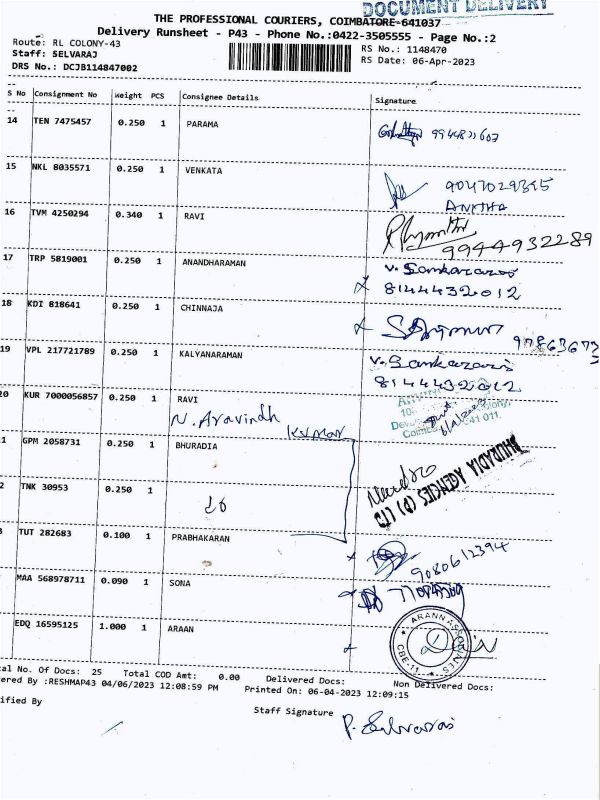 DOCUMENT DELIVERY
THE PROFESSIONAL COURIERS, COIMBATORE-641037
Delivery Runsheet - P43 - Phone No.:0422-3505555 - Page No.:2
Route: RL COLONY-43
RS No.: 1148470
Staff: SELVARAJ
RS Date: 06-Apr-2023
DRS No.: DCJB114847002
S No Consignment No Weight PCS Consignee Details Signature
14 TEN 7475457 0.250 1 PARAMA
15 NKL 8035571 0.250 1 VENKATA
ANITHA
16 TVM 4250294 0.340 1 RAVI
9944932289
17 TRP 5819001 0.250 1 ANANDHARAMAN
8144432012
18 KDI 818641 0.250 1 CHINNAJA
19 VPL 217721789 0.250 1 KALYANARAMAN
8144432012
20 KUR 7000056857 0.250 1 RAVI
N. Aravindh Kumar
1 GPM 2058731 0.250 1 BHURADIA
BHURADIA AGENCIES (P) LTD
2 TNK 30953 0.250 1
TUT 282683 0.100 1 PRABHAKARAN
9080612394
MAA 568978711 0.090 1 SONA
EDQ 16595125 1.000 1 ARAAN
CBE-11
al No. Of Docs: 25 Total COD Amt: 0.00 Delivered Docs: Non Delivered Docs:
ered By :RESHMAP43 04/06/2023 12:08:59 PM Printed On: 06-04-2023 12:09:15
ified By
Staff Signature
P. Selvaraj